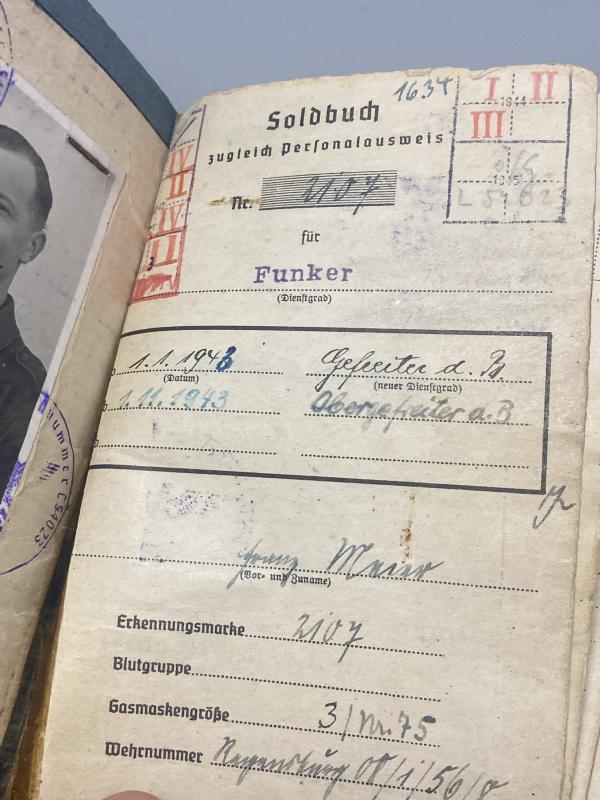 1634
Soldbuch
zugleich Personalausweis
Nr. 2107
für
Funker
(Dienstgrad)
I II
1944
III
1945
L 54 023
IV
II
IV
1.1.1943 Gefreiter d. B.
(Datum) (neuer Dienstgrad)
1.11.1943 Obergefreiter d. B
Franz Meier
(Vor- und Zuname)
Erkennungsmarke 2107
Blutgruppe
Gasmaskengröße 3/Nr. 75
Wehrnummer Regensburg 08/1/56/0
nummer L 54023